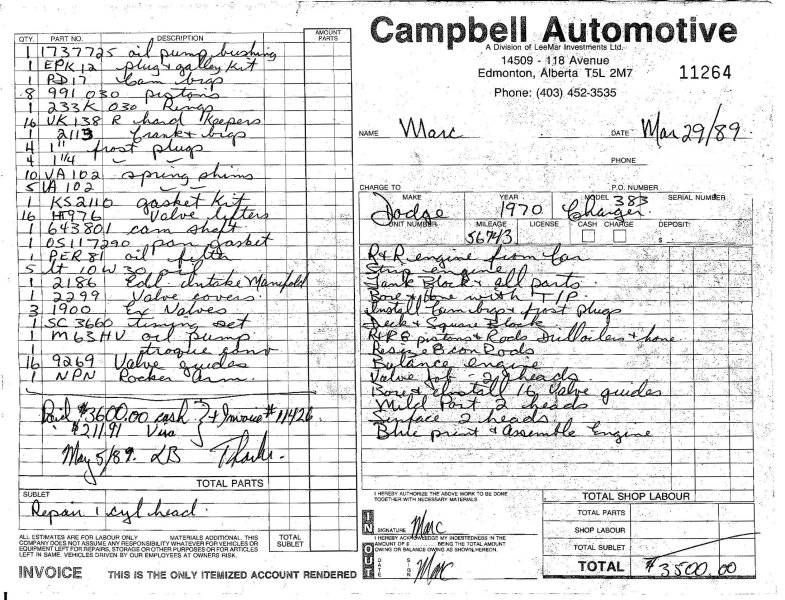 QTY. PART NO. DESCRIPTION AMOUNT PARTS
1 1737725 oil pump bushing
1 EPK 12 plug & galley Kit
1 PD17 Cam brgs
8 991 030 pistons
1 233K 030 Rings
16 VK138 R hard Keepers
1 2113 Crank & brgs
4 1" frost plugs
4 1 1/4 " "
10 VA 102 spring shims
5 VA 102 " "
1 KS2110 gasket Kit
16 HT976 Valve lifters
1 643801 cam shaft
1 OS117290 pan gasket
1 PER 81 oil filter
5 lt 10W30 oil
1 2186 Edl. intake Manifold
1 2299 Valve covers
3 1900 Ex Valves
1 SC 3660 timing set
1 M63HV oil pump
1 conv
16 9269 Valve guides
1 NPN Rocker Arm
Paid $3600.00 cash } + Invoice # 11426
$211.91 Visa
May 5/89. LB Thanks.
TOTAL PARTS
SUBLET
Repair 1 cyl head.
ALL ESTIMATES ARE FOR LABOUR ONLY MATERIALS ADDITIONAL. THIS
COMPANY DOES NOT ASSUME ANY RESPONSIBILITY WHATEVER FOR VEHICLES OR
EQUIPMENT LEFT FOR REPAIRS, STORAGE OR OTHER PURPOSES OR FOR ARTICLES
LEFT IN SAME. VEHICLES DRIVEN BY OUR EMPLOYEES AT OWNERS RISK.
TOTAL SUBLET
INVOICE THIS IS THE ONLY ITEMIZED ACCOUNT RENDERED
Campbell Automotive
A Division of LeeMar Investments Ltd.
14509 - 118 Avenue
Edmonton, Alberta T5L 2M7
11264
Phone: (403) 452-3535
NAME Marc DATE Mar 29/89
PHONE
CHARGE TO P.O. NUMBER
MAKE Dodge YEAR 1970 MODEL 383 Charger SERIAL NUMBER
UNIT NUMBER MILEAGE 56743 LICENSE CASH CHARGE DEPOSIT
$
R+R engine from Car
Strip engine
Tank Block & all parts
Bore & Hone with T/P
Install Cam brgs & frost plugs
Deck & Square Block
R+R 8 pistons & Rods & hone
Resize 8 con Rods
Balance engine
Valve Job - 2 heads
Bore & Install 16 Valve guides
Mild Port 2 heads
Surface 2 heads
Blue print & Assemble Engine
I HEREBY AUTHORIZE THE ABOVE WORK TO BE DONE
TOGETHER WITH NECESSARY MATERIALS
IN
SIGNATURE Marc
I HEREBY ACKNOWLEDGE MY INDEBTEDNESS IN THE
AMOUNT OF $ BEING THE TOTAL AMOUNT
OWING OR BALANCE OWING AS SHOWN HEREON.
OUT
DATE SIGN Marc
TOTAL SHOP LABOUR
TOTAL PARTS
SHOP LABOUR
TOTAL SUBLET
TOTAL $3500.00